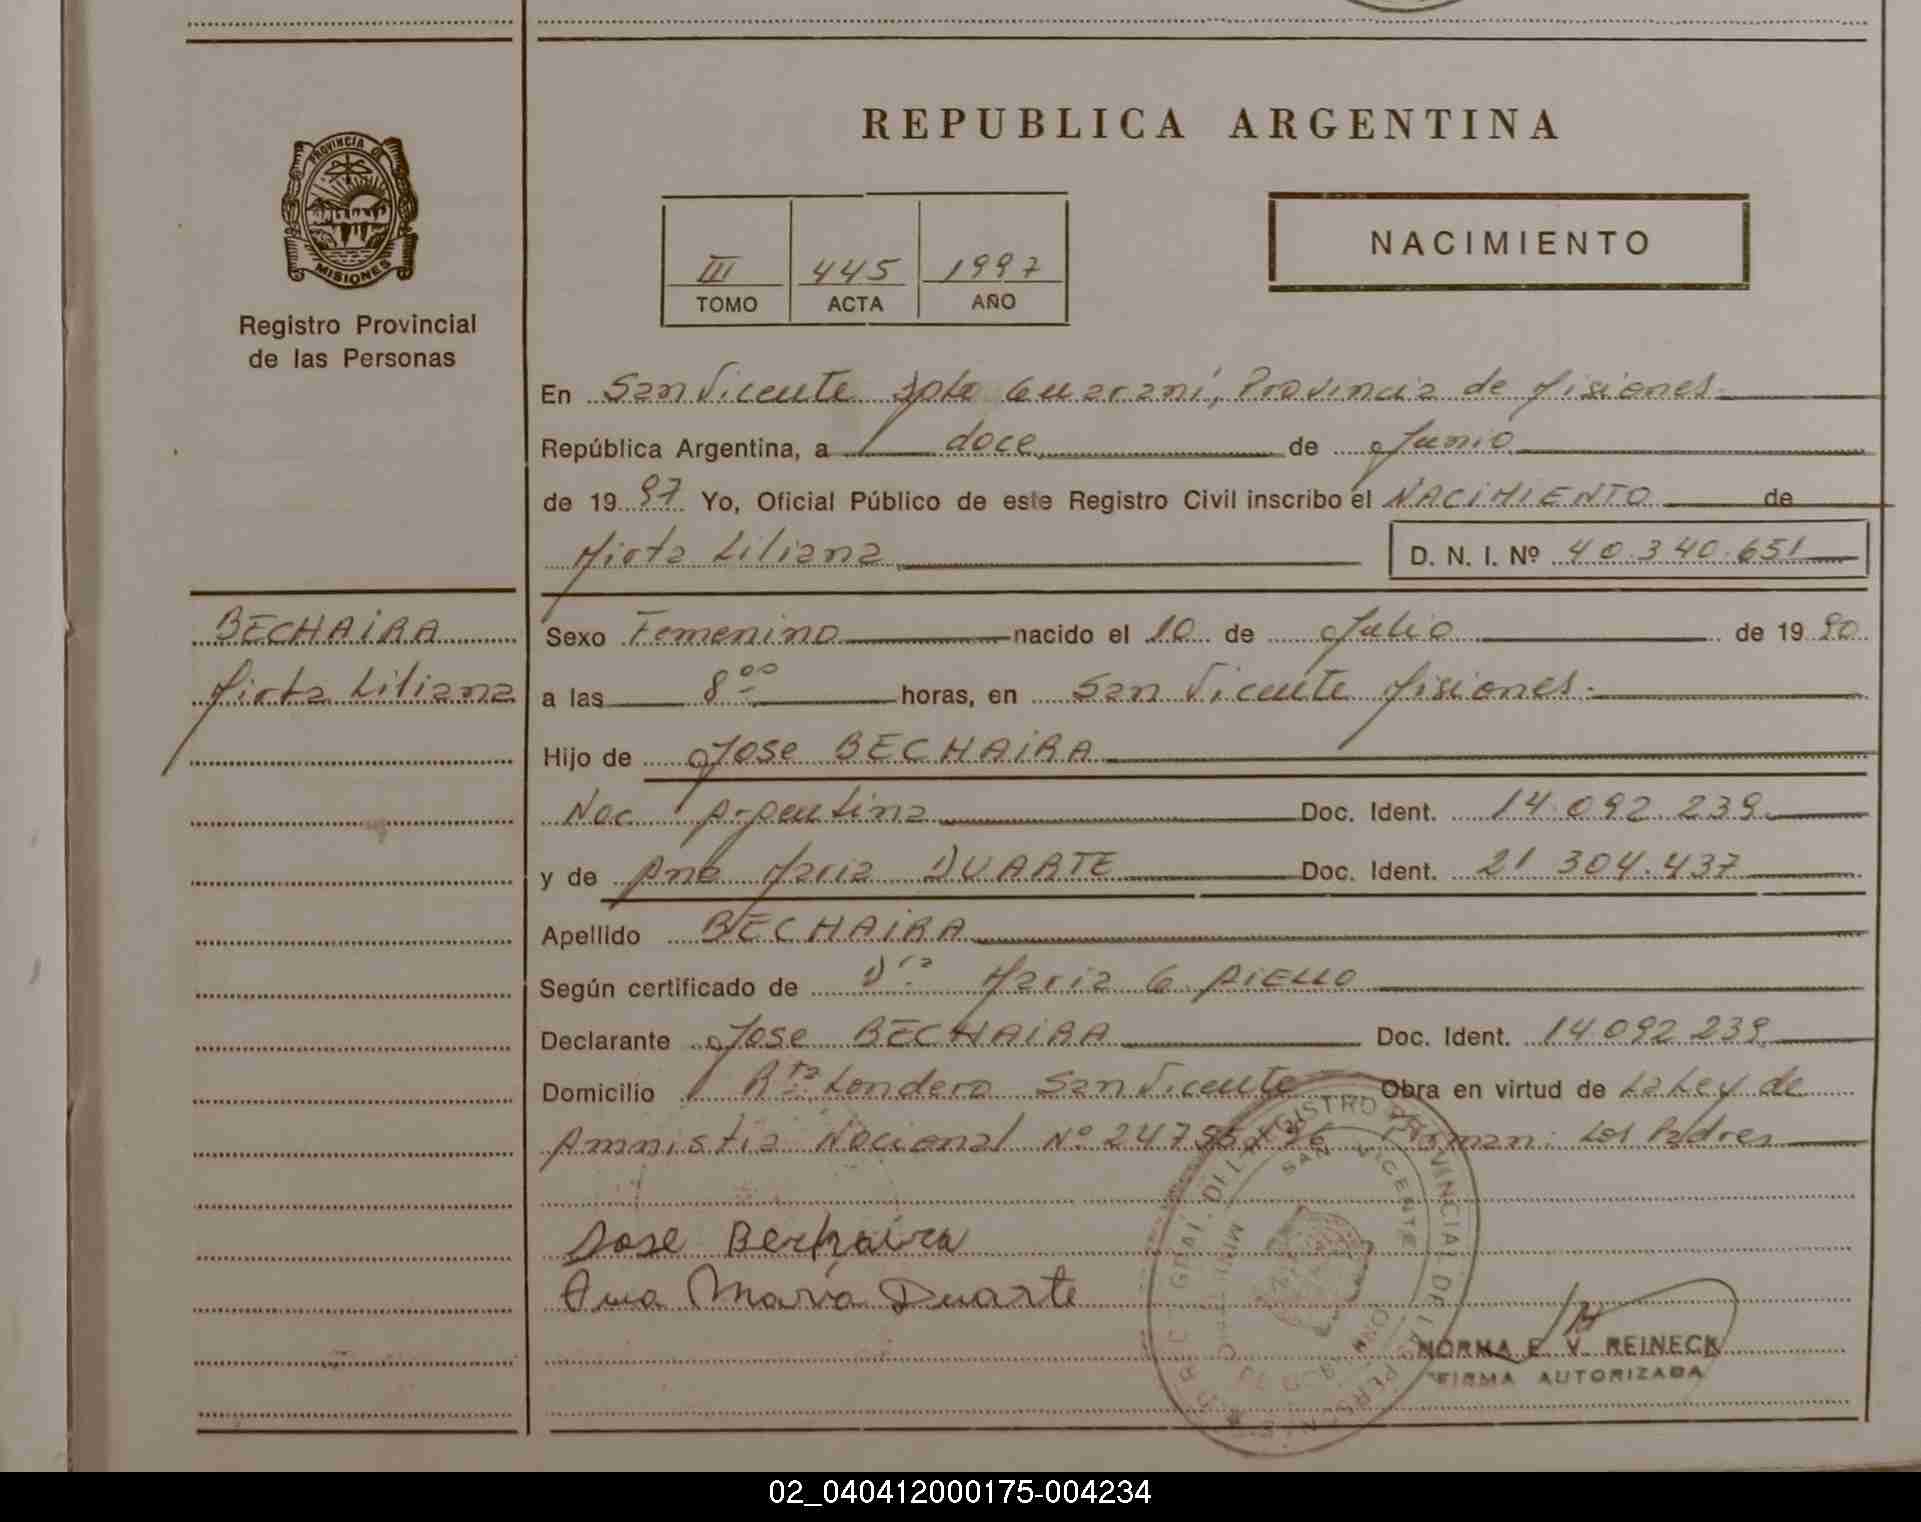 REPUBLICA ARGENTINA
PROVINCIA DE
MISIONES
Registro Provincial
de las Personas
III 445 1997
TOMO ACTA AÑO
NACIMIENTO
En San Vicente Dpto Guaraní, Provincia de Misiones
República Argentina, a doce de Junio
de 1997 Yo, Oficial Público de este Registro Civil inscribo el NACIMIENTO de
Mirta Liliana D. N. I. Nº 40.340.651
BECHAIRA
Mirta Liliana
Sexo Femenino nacido el 10 de Julio de 1990
a las 8 00 horas, en San Vicente Misiones
Hijo de Jose BECHAIRA
Nac Argentina Doc. Ident. 14.092.239
y de Ana Maria DUARTE Doc. Ident. 21.304.437
Apellido BECHAIRA
Según certificado de Dra Maria G AIELLO
Declarante Jose BECHAIRA Doc. Ident. 14.092.239
Domicilio Rta Londero San Vicente Obra en virtud de La Ley de
Amnistia Nacional Nº 24755/96 Firman: Los Padres
Jose Bechaira
Ana María Duarte
SAN VICENTE
NORMA E. V. REINECK
FIRMA AUTORIZADA
02_040412000175-004234